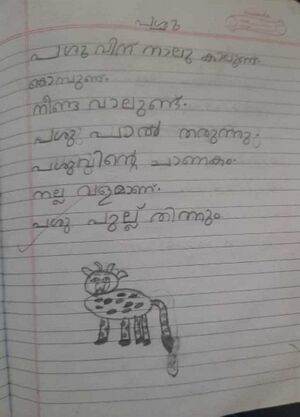 പശു
പശുവിന് നാലു കാലുണ്ട്.
കൊമ്പുണ്ട്.
നീണ്ട വാലുണ്ട്.
പശു പാൽ തരുന്നു.
പശുവിന്റെ ചാണകം
നല്ല വളമാണ്.
പശു പുല്ല് തിന്നും